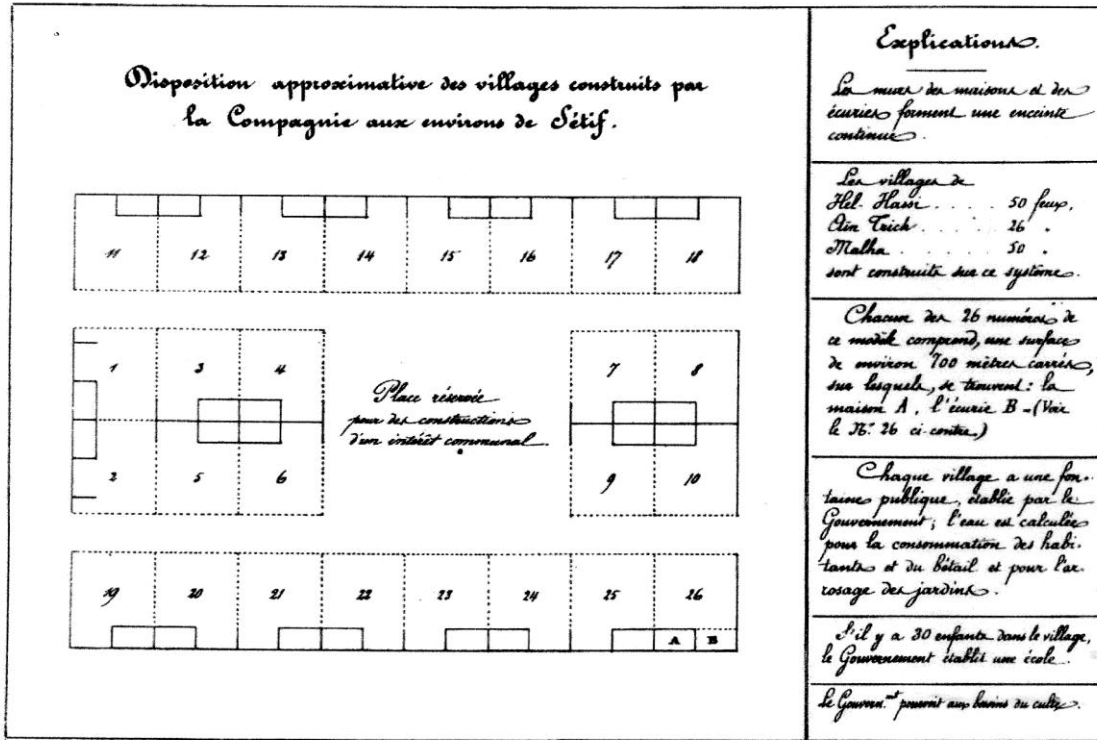 Disposition approximative des villages construits par
la Compagnie aux environs de Sétif.
11 12 13 14 15 16 17 18
1 3 4 7 8
Place réservée
pour des constructions
d'un intérêt communal.
2 5 6 9 10
19 20 21 22 23 24 25 26
A B
Explications.
Les murs des maisons et des
écuries forment une enceinte
continue.
Les villages de
Hel. Hassi . . . . 50 feux.
Aïn Trick . . . . 26 "
Malha . . . . . 50 "
sont construits sur ce système.
Chacun des 26 numéros de
ce modèle comprend, une surface
de environ 700 mètres carrés,
sur lesquels, se trouvent : la
maison A, l'écurie B – (Voir
le N° 26 ci-contre.)
Chaque village a une fon-
taine publique, établie par le
Gouvernement ; l'eau est calculée
pour la consommation des habi-
tants et du bétail et pour l'ar-
rosage des jardins.
S'il y a 30 enfants dans le village,
le Gouvernement établit une école.
Le Gouvern.mt pourvoit aux besoins du culte.